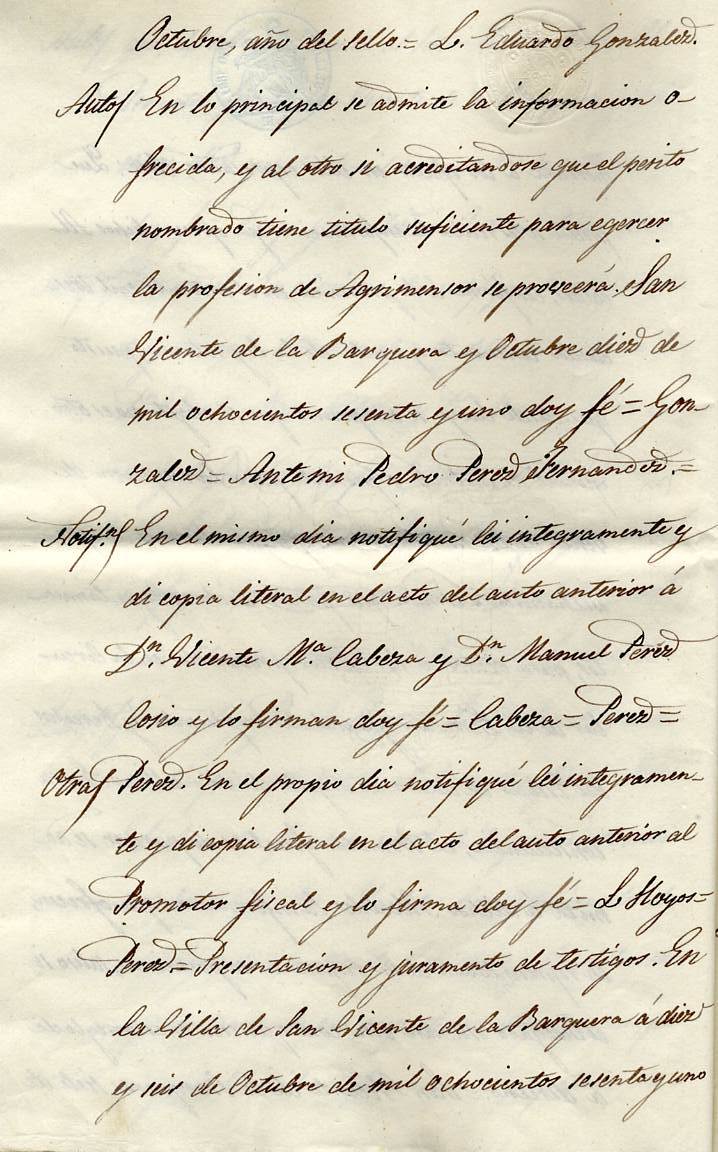 Octubre, año del sello = L. Eduardo Gonzalez.
Auto} En lo principal se admite la informacion o-
frecida, y al otro si acreditandose que el perito
nombrado tiene titulo suficiente para egercer
la profesion de Agrimensor se proveerá. San
Vicente de la Barquera y Octubre diez de
mil ochocientos sesenta y uno doy fé = Gon-
zalez = Ante mi Pedro Perez Fernandez. =
Notif.n} En el mismo dia notifiqué lei integramente y
di copia literal en el acto del auto anterior á
Dn. Vicente Mª Cabeza y Dn. Manuel Pérez
Cosio y lo firman doy fé = Cabeza = Perez =
Otra} Perez. En el propio dia notifiqué lei integramen-
te y di copia literal en el acto del auto anterior al
Promotor fiscal y lo firma doy fé = L Hoyos =
Perez = Presentacion y juramento de testigos. En
la Villa de San Vicente de la Barquera á diez
y seis de Octubre de mil ochocientos sesenta y uno